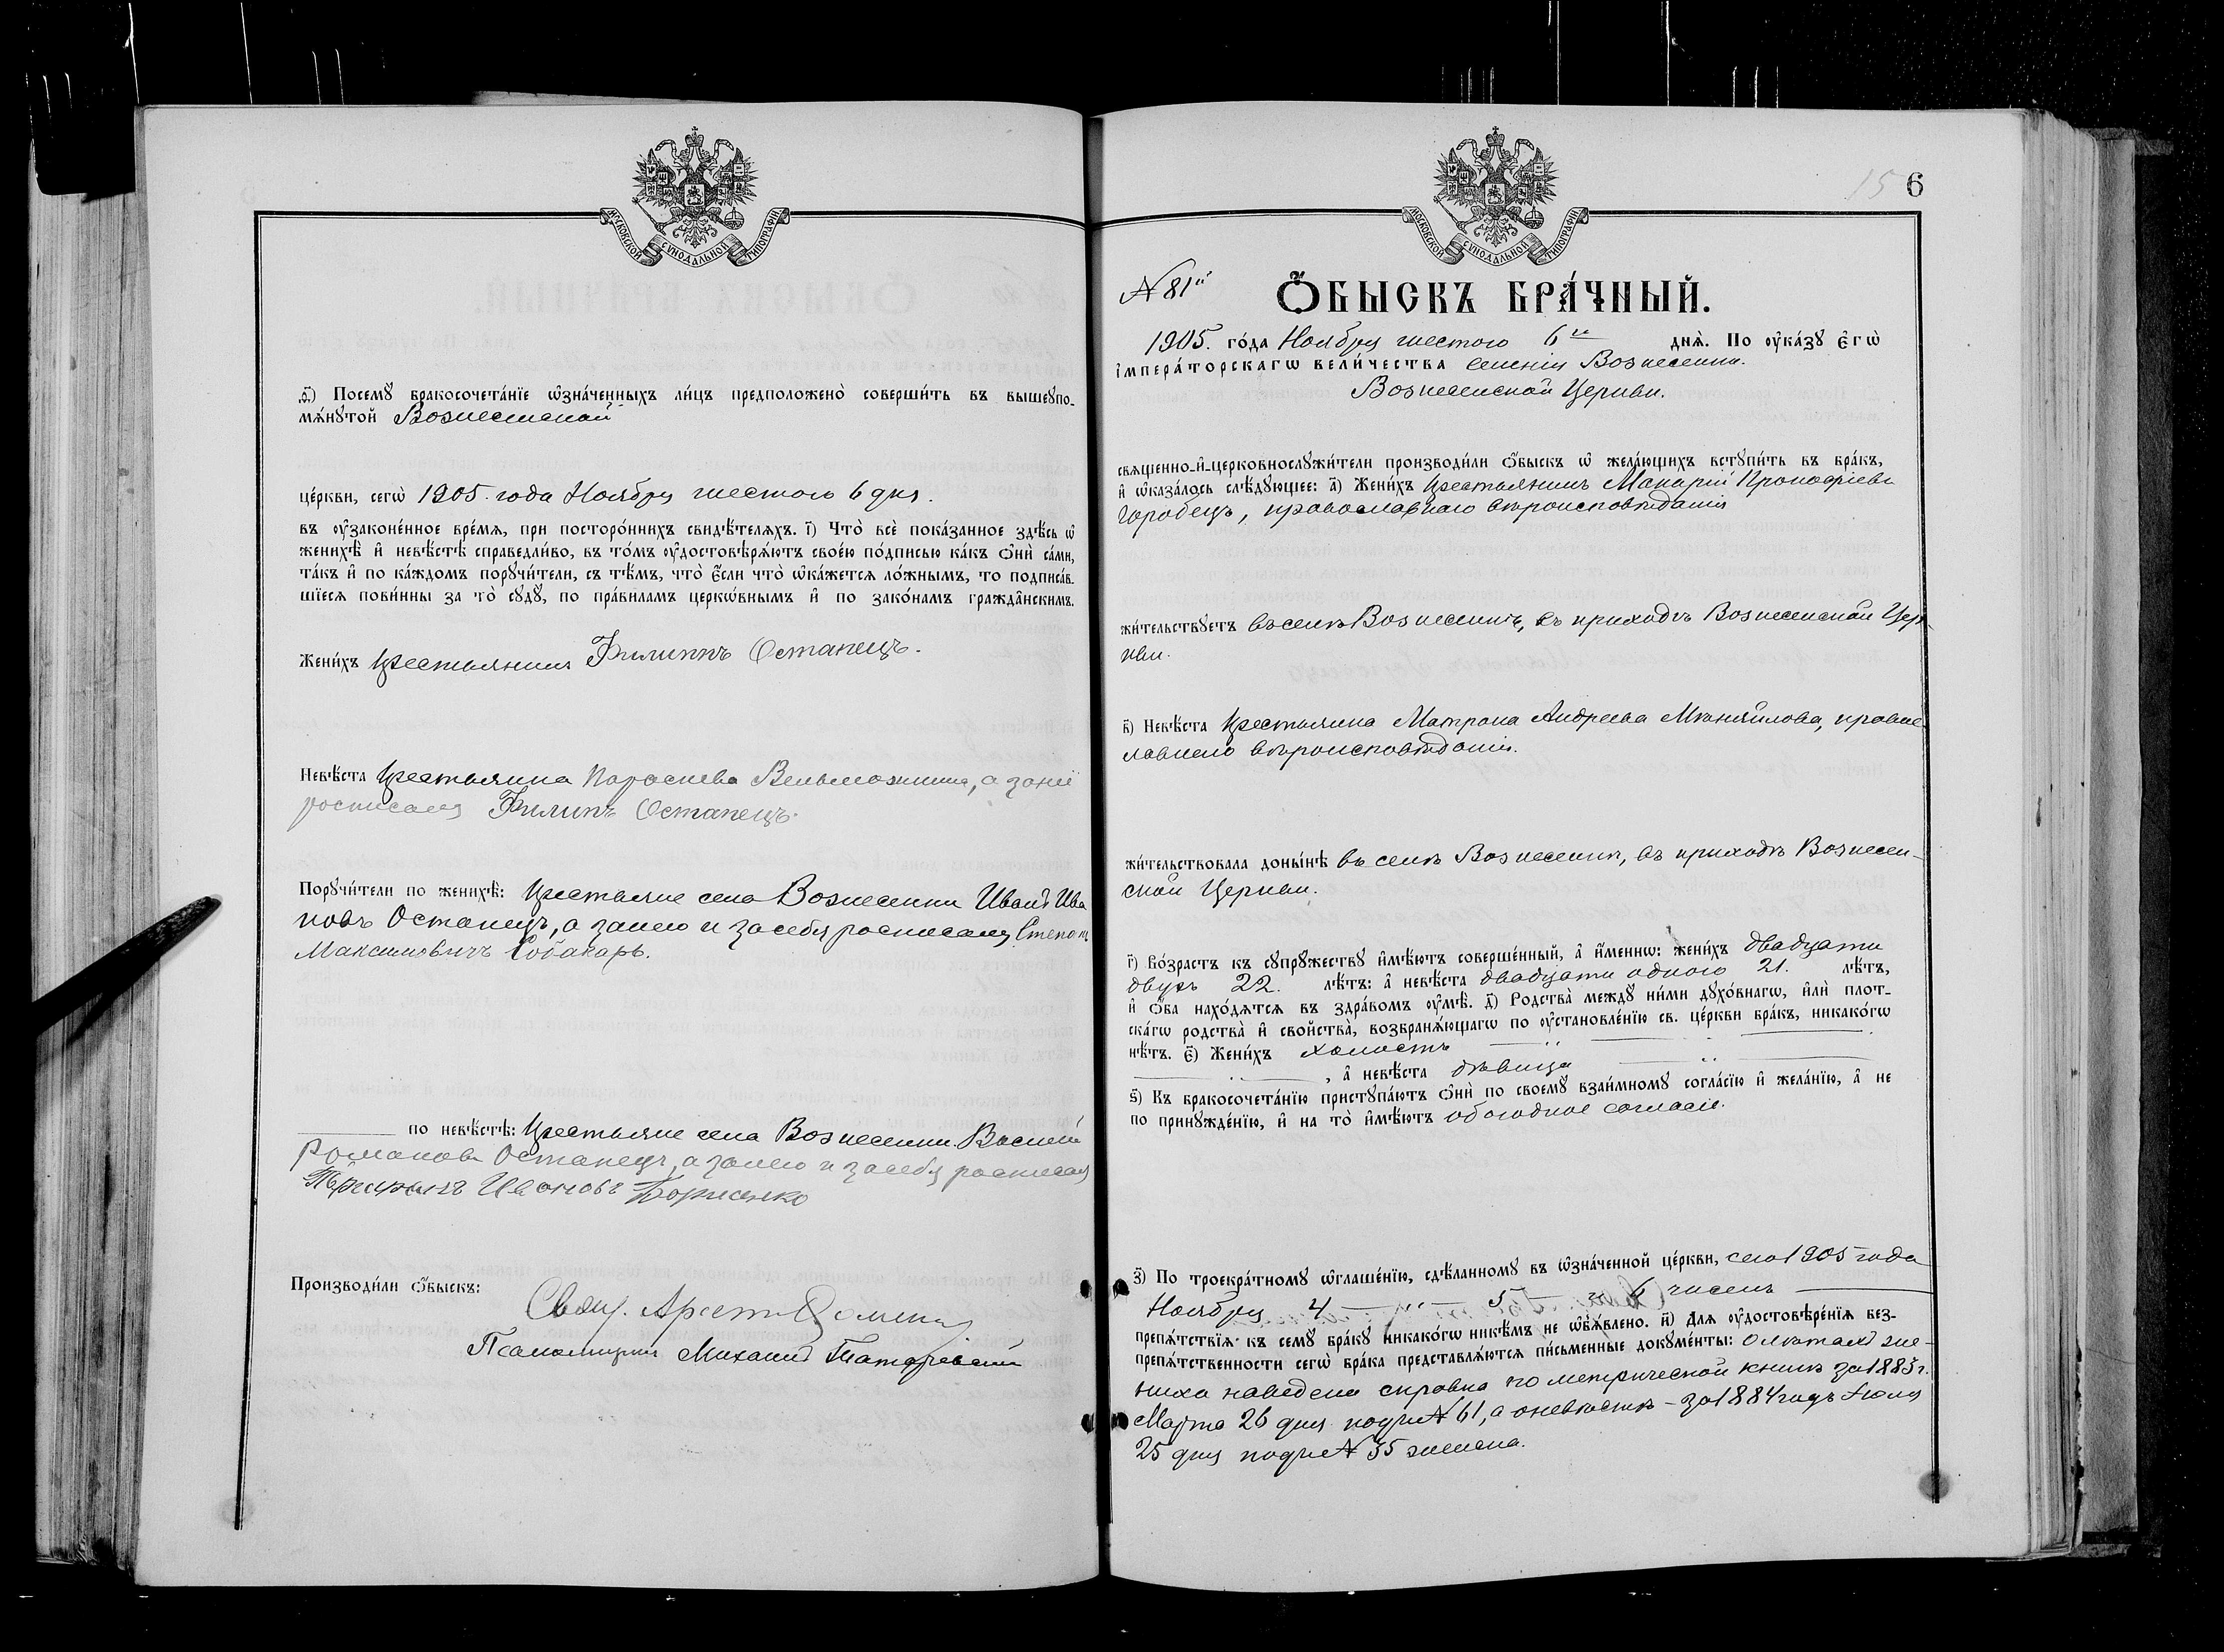 МОСКОВСКОЙ СѴНОДАЛЬНОЙ ТИПОГРАФІИ
ѳ҃) Посемꙋ бракосочета́нїе ѡ҆зна́ченныхъ ли́цъ предположено̀ соверши́ть въ вышеꙋпо-
мѧ́нꙋтой Вознесенской
це́ркви, сегѡ̀ 1905. года Ноября шестого 6 дня.
въ ᲂу҆законе́нное вре́мѧ, при посторо́ннихъ свидѣ́телѧхъ. і҃) Что̀ всѐ пока́занное здѣ́сь ѡ҆
женихѣ̀ и҆ невѣ́стѣ справедли́во, въ то́мъ ᲂу҆достовѣрѧ́ютъ свое́ю по́дписью ка́къ ѻ҆нѝ са́ми,
та́къ и҆ по ка́ждомъ порꙋчи́тели, съ тѣ́мъ, что̀ є҆́сли что̀ ѡ҆ка́жетсѧ ло́жнымъ, то подписа́в-
шїесѧ пови́нны за то̀ сꙋдꙋ̀, по пра́виламъ церко́внымъ и҆ по зако́намъ гражда̑нскимъ.
Жени́хъ крестьянинъ Филиппъ Останецъ.
Невѣ́ста крестьянка Параскева Вельможина, а за ней
росписался Филипъ Останецъ.
Порꙋчи́тели по женихѣ̀: крестьяне села Вознесенки Иванъ Ива
новъ Останецъ, а за него и за себя росписался Степанъ
Максимовичъ Собакарь.
по невѣ́стѣ: крестьяне села Вознесенки Василій
Романовъ Останецъ, а за него и за себя росписался
Ивановъ Борисенко
Производи́ли ѻ҆́быскъ:
Свящ.
Псаломщикъ Михаилъ
МОСКОВСКОЙ СѴНОДАЛЬНОЙ ТИПОГРАФІИ
15 6
№ 81й
Ѻ҆́БЫСКЪ БРА́ЧНЫЙ.
1905. го́да Ноября шестого 6го днѧ̀. По ᲂу҆ка́зꙋ є҆гѡ̀
і҆мпера́торскагѡ вели́чества селенія Вознесенки.
Вознесенской Церкви.
свѧще́нно-и҆-церковнослꙋжи́тели производи́ли ѻ҆́быскъ ѡ҆ жела́ющихъ встꙋпи́ть въ бра́къ,
и҆ ѡ҆каза́лось слѣ́дꙋющее: а҃) Жени́хъ крестьянинъ Макарій Прокофіевъ
Городецъ, православнаго вѣроисповѣданія
жи́тельствꙋетъ въ селѣ Вознесенкѣ, въ приходѣ Вознесенской Цер-
кви.
в҃) Невѣ́ста крестьянка Матрона Андреева Михайлова, правос
лавнего вѣроисповѣданія.
жи́тельствовала доны́нѣ въ селѣ Вознесенкѣ, въ приходѣ Вознесен-
ской Церкви.
г҃) Во́зрастъ къ сꙋпрꙋ́жествꙋ и҆мѣ́ютъ соверше́нный, а҆ и҆́меннѡ: жени́хъ двадцати
двухъ 22. лѣ́тъ: а҆ невѣ́ста двадцати одного 21. лѣ́тъ,
и҆ ѻ҆́ба нахо́дѧтсѧ въ здра́вомъ ᲂу҆мѣ̀. д҃) Родства̀ междꙋ ни́ми дꙋхо́внагѡ, и҆лѝ плот-
ска́гѡ родства̀ и҆ сво́йства, возбранѧ́ющагѡ по ᲂу҆становле́нїю св. це́ркви бра́къ, никако́гѡ
нѣ́тъ. є҃) Жени́хъ холостъ
, а҆ невѣ́ста дѣвица
ѕ҃) Къ бракосочета́нїю пристꙋпа́ютъ ѻ҆нѝ по своемꙋ̀ взаи́мномꙋ согла́сїю и҆ жела́нїю, а҆ не
по принꙋжде́нїю, и҆ на то̀ и҆мѣ́ютъ обоюдное согласіе.
з҃) По троекра́тномꙋ ѡ҆глаше́нїю, сдѣ́ланномꙋ въ ѡ҆зна́ченной це́ркви, сего 1905 года
Ноября 4 — „ — 5 — и 6 чиселъ
препѧ́тствїѧ къ семꙋ̀ бра́кꙋ никако́гѡ никѣ́мъ не ѡ҆б̾ѧ́влено. и҃) Длѧ ᲂу҆достовѣре́нїѧ без-
препѧ́тственности сегѡ̀ бра́ка представлѧ́ютсѧ пи́сьменные докꙋме́нты: о лѣтахъ же-
ниха наведена справка по метрической книгѣ за 1883 г.
Марта 26 дня подъ № 61, а о невѣстѣ - за 1884 годъ Іюля
25 дня подъ № 55 женска.